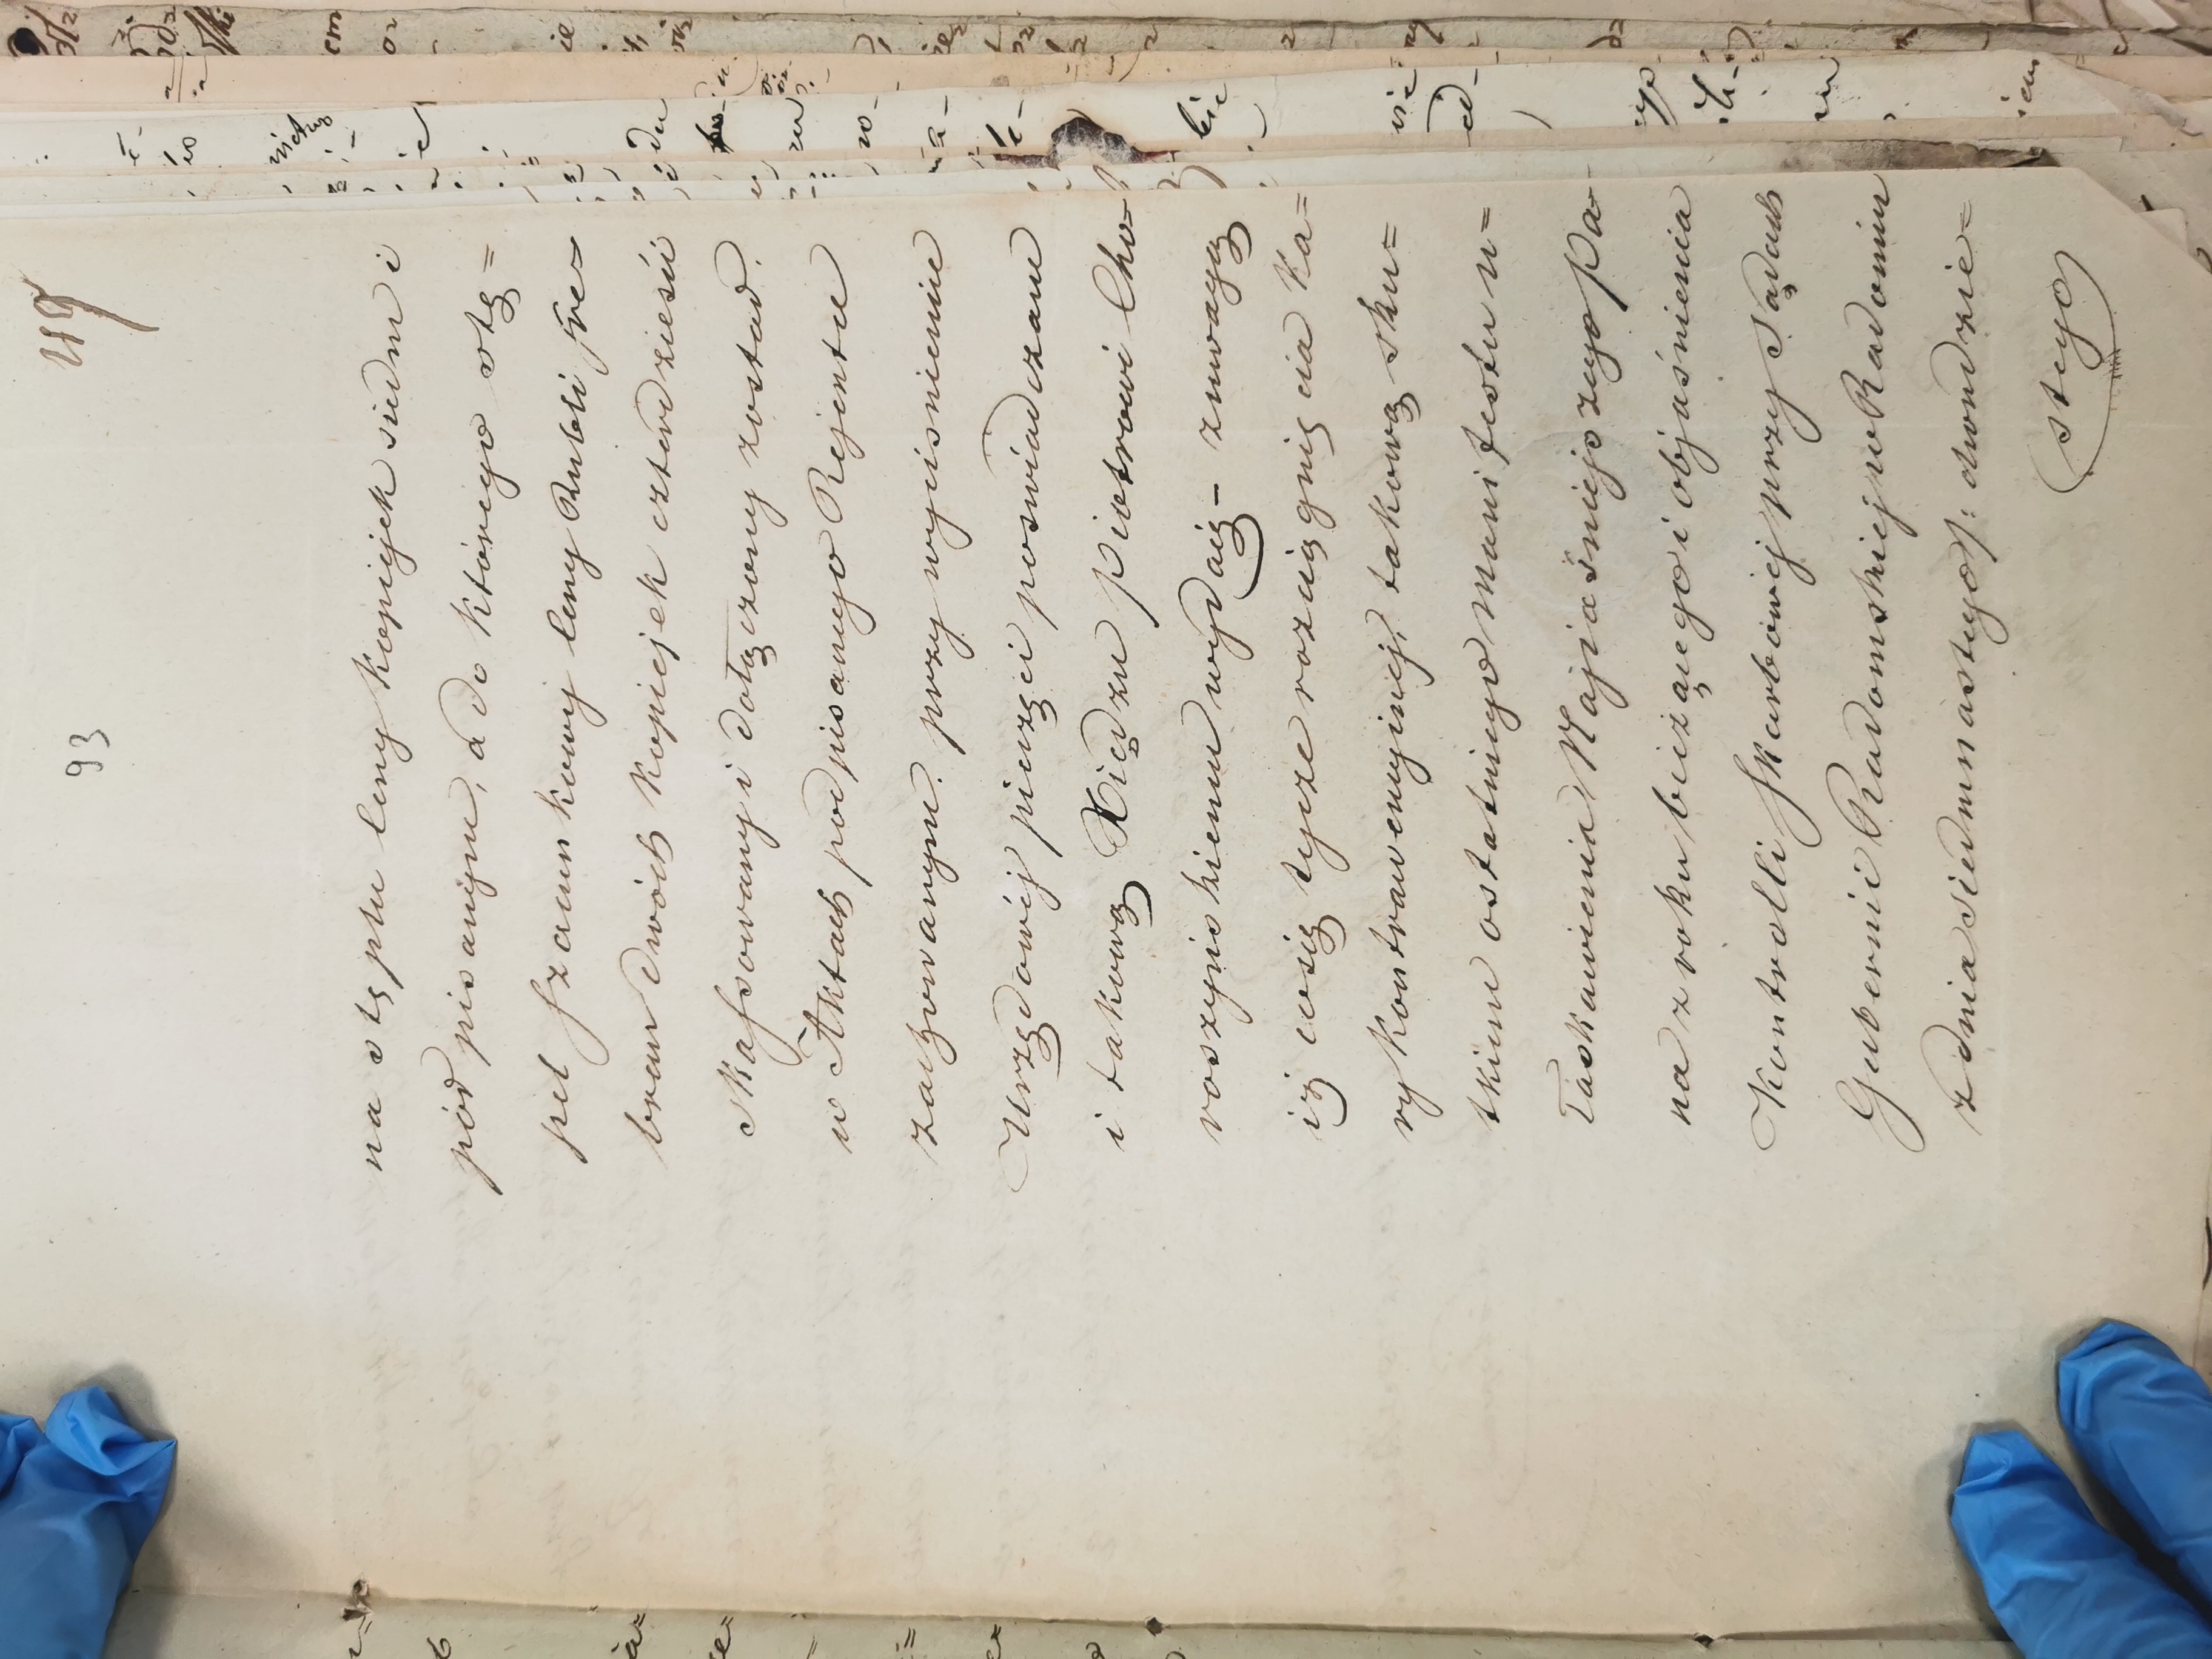 93
49
na stęplu ceny kopiejek siedm i
podpisanym, a do którego stę=
pel szacunkowy ceny Rubli sre=
brem dwóch kopiejek czterdzieści
skassowany i dołączony został.
w Aktach podpisanego Rejenta
zachowanym. przy wyciśnienie
Urzędowéj pieczęci poswiadczam
i takową Xiędzu Piotrowi Cho-
roszyńskiemu wydaię – z uwagą
iż cosię tycze rozciągnięcia Ka=
ry Kontrawencyinej, takową sku=
tkiem ostatniego manifestu u=
łaskawienia Najiaśniejszego Pa-
na z roku bieżącego i objaśnienia
Kontrolli Skarbowéj przy Sądach
Gubernii Radomskiej w Radomiu
z dnia siedmnastego/: dwudzie=
stego